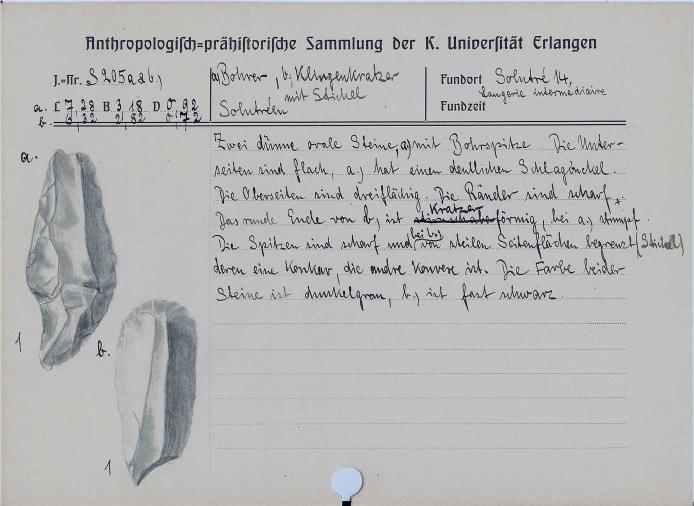 Anthropologisch=prähistorische Sammlung der K. Universität Erlangen
J.=Nr. S 205 a & b)
a) Bohrer, b) Klingenkratzer
mit Stichel
Solutréen
Fundort Solutré 14,
Laugerie intermédiaire
Fundzeit
a. L 7,38 B 3,18 D 0,92
b. 6,32 2,82 0,72
Zwei dünne ovale Steine, a) mit Bohrspitze. Die Unter-
seiten sind flach, a) hat einen deutlichen Schlagbuckel.
Die Oberseiten sind dreiflächig. Die Ränder sind scharf.
Das runde Ende von b) ist Kratzerförmig, bei a) stumpf.
Die Spitzen sind scharf und bei b) von steilen Seitenflächen begrenzt (Stichel)
deren eine Konkav, die andre Konvex ist. Die Farbe beider
Steine ist dunkelgrau, b) ist fast schwarz.
a.
1
b.
1